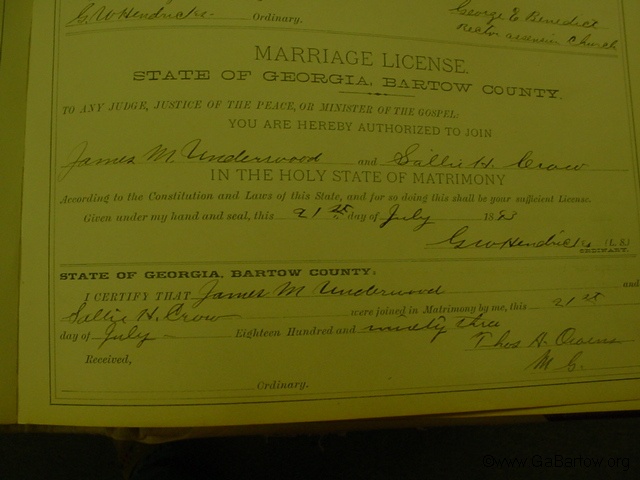 G W Hendricks Ordinary. George E Benedict
Rector Church
MARRIAGE LICENSE.
STATE OF GEORGIA, BARTOW COUNTY.
TO ANY JUDGE, JUSTICE OF THE PEACE, OR MINISTER OF THE GOSPEL:
YOU ARE HEREBY AUTHORIZED TO JOIN
James M. Underwood and Sallie H. Crow
IN THE HOLY STATE OF MATRIMONY
According to the Constitution and Laws of this State, and for so doing this shall be your sufficient License.
Given under my hand and seal, this 21st day of July 18
G W Hendricks (L. S.)
ORDINARY.
STATE OF GEORGIA, BARTOW COUNTY:
I CERTIFY THAT James M Underwood and
Sallie H. Crow were joined in Matrimony by me, this 21st
day of July Eighteen Hundred and ninety three
Thos H. Owens
M G.
Received,
Ordinary.
©www.GaBartow.org